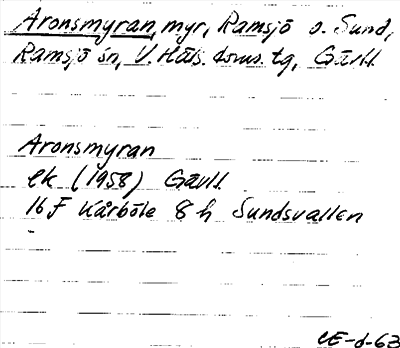 Aronsmyran, myr, Ramsjö o. Sund,
Ramsjö sn, V. Häls. doms. tg, Gävl.
Aronsmyran
ek (1958) Gävl.
16 F Kårböle 8 h Sundsvallen
CE-d-63